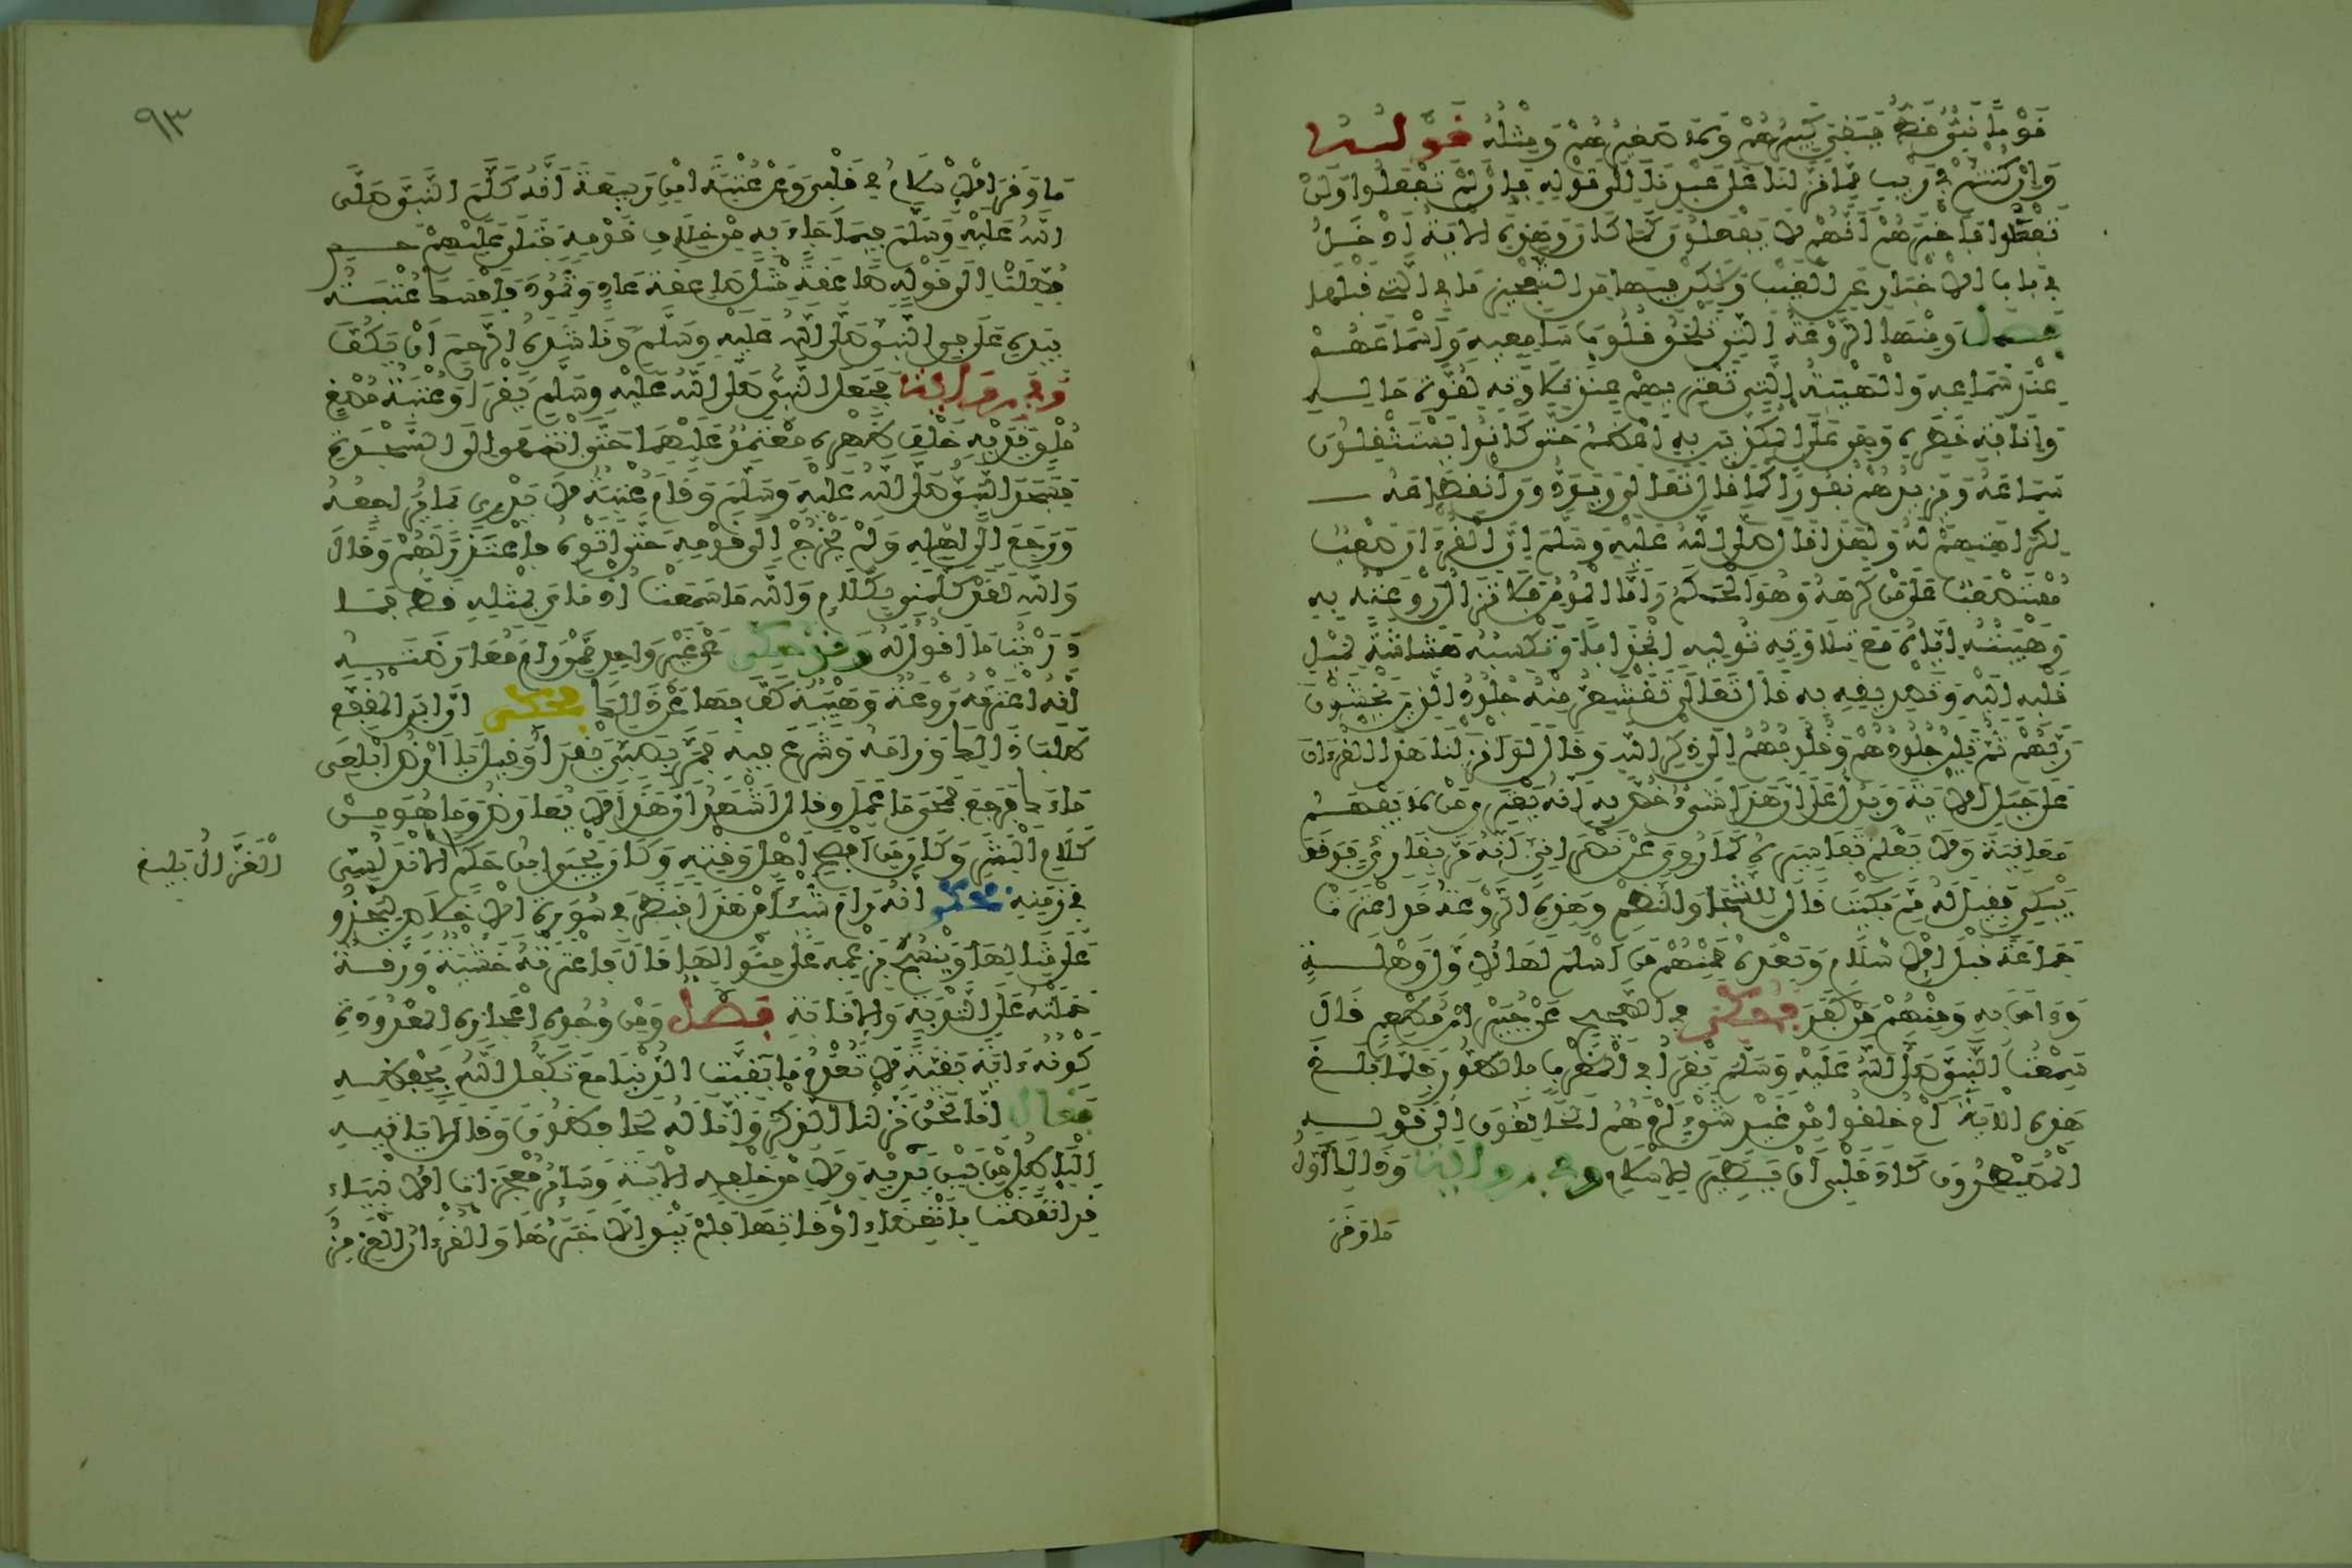 قوما نبي قط فبقي كبيرهم ولا صغيرهم ومثله قوله
وإن كنتم في ريب مما نزلنا على عبدنا إلى قوله فإن لم تفعلوا ولن
تفعلوا فأخبرهم أنهم لا يفعلون كما كان وهذه الآية أدخل
في باب الإخبار عن الغيب ولكن فيها من التعجيز ما في التي قبلها
فصل ومنها الروعة التي تلحق قلوب سامعيه وأسماعهم
عند سماعه والهيبة التي تعتريهم عند تلاوته لقوة حاله
وإنافة خطره وهي على المكذبين به أعظم حتى كانوا يستثقلون
سماعه ويزيدهم نفورا كما قال تعالى ويودون انقطاعه
لكراهتهم له ولهذا قال صلى الله عليه وسلم إن القرءان صعب
مستصعب على من كرهه وهو الحكم وأما المؤمن فلا تزال روعته به
وهيبته إياه مع تلاوته توليه انجذابا وتكسبه هشاشة لميل
قلبه إليه وتصديقه به قال تعالى تقشعر منه جلود الذين يخشون
ربهم ثم تلين جلودهم وقلوبهم إلى ذكر الله وقال لو أنزلنا هذا القرءان
على جبل الآية ويدل على أن هذا شيء خص به أنه يعتري من لا يفهم
معانيه ولا يعلم تفاسيره كما روي عن نصراني أنه مر بقارئ فوقف
يبكي فقيل له مم بكيت قال للشجا والنظم وهذه الروعة قد اعترت
جماعة قبل الإسلام وبعده فمنهم من أسلم لها لأول وهلة
وءامن به ومنهم من كفر فحكي في الصحيح عن جبير بن مطعم قال
سمعت النبي صلى الله عليه وسلم يقرأ في المغرب بالطور فلما بلغ
هذه الآية أم خلقوا من غير شيء أم هم الخالقون إلى قوله
المصيطرون كاد قلبي أن يطير للإسلام وفي رواية وذلك أول
ما وقر
٩٣
ما وقر الإسلام في قلبي وعن عتبة ابن ربيعة أنه كلم النبي صلى
الله عليه وسلم فيما جاء به من خلاف قومه فتلى عليهم حم
فصلت إلى قوله صاعقة مثل صاعقة عاد وثمود فأمسك عتبة
بيده على في النبي صلى الله عليه وسلم وناشده الرحم أن يكف
وفي رواية فجعل النبي صلى الله عليه وسلم يقرأ وعتبة مصغ
ملق يديه خلف ظهره معتمد عليهما حتى انتهى إلى السجدة
فسجد النبي صلى الله عليه وسلم وقام عتبة لا يدري بما يراجعه
ورجع إلى أهله ولم يخرج إلى قومه حتى أتوه فاعتذر لهم وقال
والله لقد كلمني بكلام والله ما سمعت أذناي بمثله قط فما
دريت ما أقول له وقد حكي عن غير واحد ممن رام معارضته
أنه اعترته روعة وهيبة كف بها عن ذلك فحكي أن ابن المقفع
طلب ذلك ورامه وشرع فيه فمر بصبي يقرأ وقيل يا أرض ابلعي
ماءك فرجع فمحى ما عمل وقال أشهد أن هذا لا يعارض وما هو من
كلام البشر وكان من أفصح أهل وقته وكان يحيى بن حكم الأندلسي
الغزال بليغ
في زمنه فحكي أنه رام شيئا من هذا فنظر في سورة الإخلاص ليحذو
على مثالها وينسج بزعمه على منوالها قال فاعترته خشية ورقة
حملته على التوبة والإنابة فصل ومن وجوه إعجازه المعدودة
كونه ءاية باقية لا تعدم ما بقيت الدنيا مع تكفل الله بحفظه
فقال إنا نحن نزلنا الذكر وإنا له لحافظون وقال لا يأتيه
الباطل من بين يديه ولا من خلفه الآية وسائر معجزات الأنبياء
انقضت بانقضاء أوقاتها فلم يبق إلا خبرها والقرءان العزيز